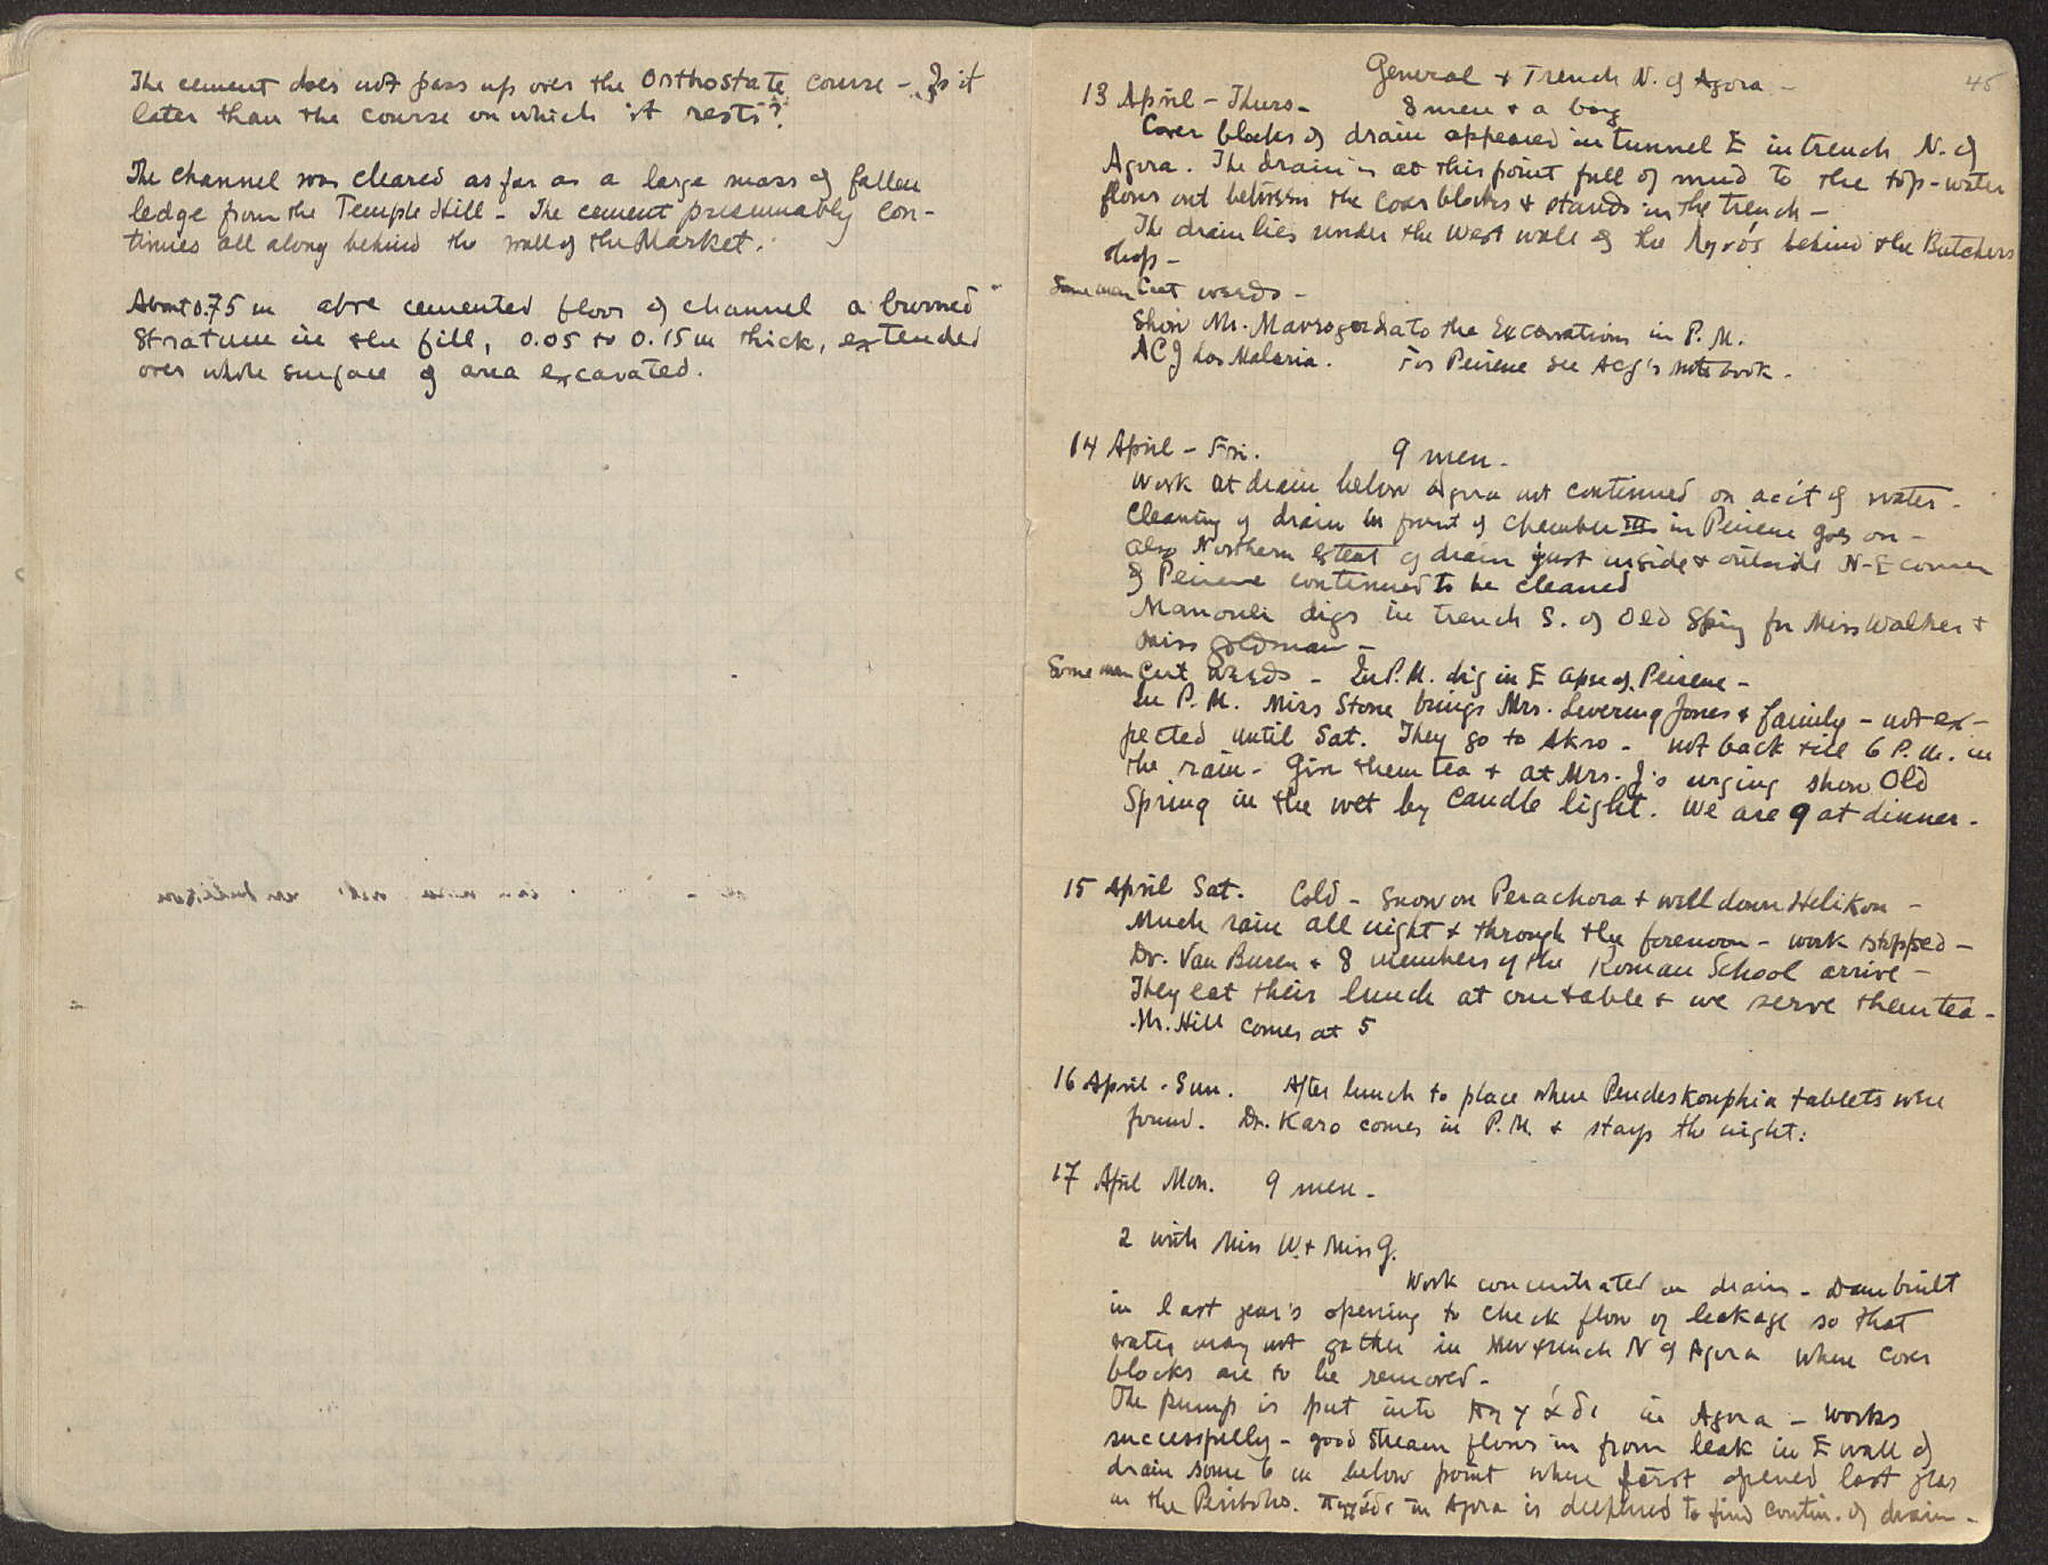 The cement does not pass up over the Orthostate course - Is it
later than the course on which it rests?
The channel was cleared as far as a large mass of fallen
ledge from the Temple Hill - The cement presumably con-
tinues all along behind the wall of the Market.
About 0.75 m above cemented floor of channel a burned
stratum in the fill, 0.05 to 0.15 m thick, extended
over whole surface of area excavated.
45
General & Trench N. of Agora -
13 April - Thurs - 8 men & a boy
Cover blocks of drain appeared in tunnel E in trench N. of
Agora. The drain is at this point full of mud to the top - water
flows out between the cover blocks & stands in the trench -
The drain lies under the West wall of the behind the Butchers
shop -
Some men Cut weeds -
Show Mr. Mavrogordato the Excavations in P.M.
ACG has Malaria. For Peirene see ACG's notebook.
14 April - Fri. 9 men -
Work at drain below Agora not continued on acc't of water -
Cleaning of drain in front of Chamber III in Peirene goes on -
also Northern of drain just inside & outside N-E corner
of Peirene continued to be cleaned
Manouli digs in trench S. of Old Spring for Miss Walker &
Miss Goldman -
Some men Cut weeds - In P.M. dig in E apse of Peirene -
In P.M. Miss Stone brings Mrs. Levering Jones & family - not ex-
pected until Sat. They go to Akro - not back till 6 P.M. in
the rain - Give them tea & at Mrs. J's urging show Old
Spring in the wet by candle light. We are 9 at dinner -
15 April Sat. Cold - Snow on Perachora & well down Helikon -
Much rain all night & through the forenoon - work stopped -
Dr. Van Buren & 8 members of the Roman School arrive -
They eat their lunch at our table & we serve them tea -
Mr. Hill comes at 5
16 April - Sun. After lunch to place where Pendeskouphia tablets were
found. Dr. Karo comes in P.M. & stays the night.
17 April Mon. 9 men -
2 with Miss W. & Miss G.
Work concentrated on drain - Dam built
in last year's opening to check flow of leakage so that
water may not gather in new trench N of Agora where cover
blocks are to be removed -
The pump is put into πηγάδι in Agora - works
successfully - good stream flows in from leak in E wall of
drain some 6 m below point where first opened last year
in the Peribolos. πηγάδι in Agora is deepened to find contin. of drain -